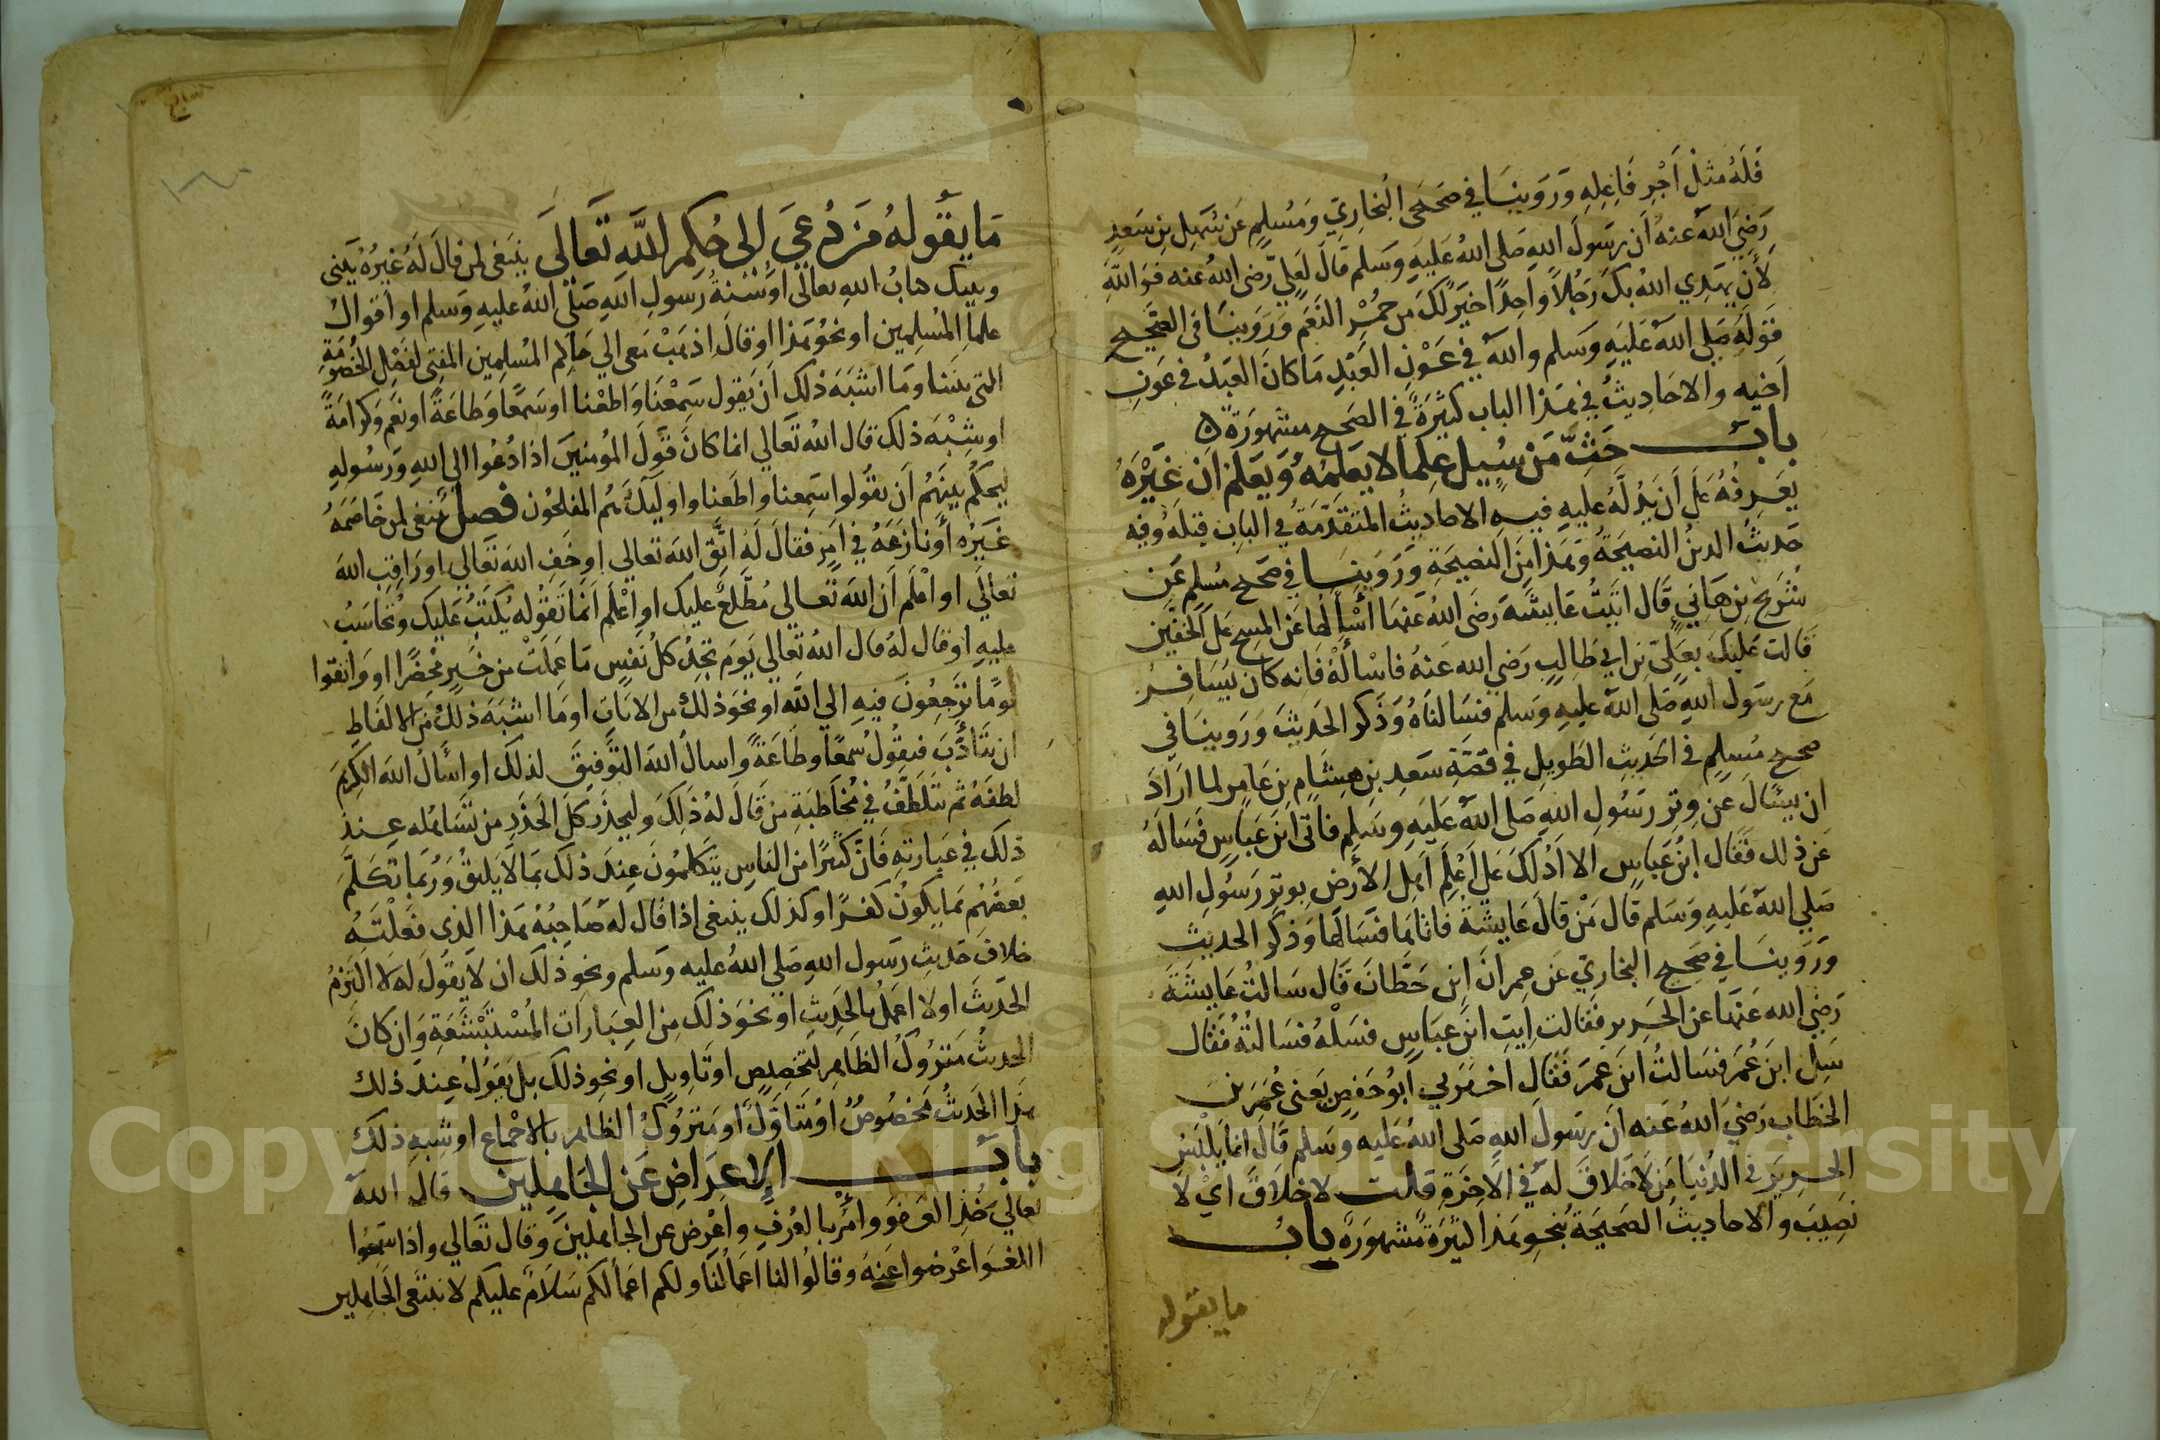 فَلَهُ مثلُ اَجْرِ فَاعِلِهِ وَرَوَينَا في صَحيحَي البُخاريّ وَمُسْلِمٍ عَن سَهلِ بنِ سَعدٍ
رَضِيَ اللهُ عنهُ أن رسَولَ اللهِ صَلى اللهُ عَليهِ وَسَلم قالَ لَعليّ رضى اللهُ عنه فوَاللهِ
لَأن يهدي اللهُ بكَ رَجُلاً واحِداً خيرٌ لكَ من حُمْرِ النعَم وَرَوَينَا فى الصَّحيح
قَولَه صَلى اللهُ عَليَهِ وَسَلم واللهُ في عَوْنِ العَبْدِ مَا كانَ العَبدُ في عَونِ
أخيه والاحَاديثُ في هَذا الباب كثيرَةٌ في الصَحيح مشهوَرَة ۵
باب حَثِّ مَن سُيل علِمًا لا يعَلمهُ وَيَعَلمُ اَن غَيْرَهُ
يعَرِفُهُ عَلى اَن يَدُلَّهُ عَليهِ فيهِ الاحاديثُ المتَقَدّمَةُ في البابِ قبلَهُ وفيه
حَديثُ الدينُ النصيحَةُ وَهَذا مِنَ النصيحَةِ وَرَوَينَا في صَحيح مُسلم عَن
شُريح بنِ هَاني قَال اتَيتُ عَايشَةَ رَضَى اللهُ عَنهَا أَسْأَلها عَن المسح عَلى الخفّين
قَالت عَليكَ بعَليّ بن ابي طَالِبٍ رَضي الله عَنهُ فاسْألْهُ فَانه كانَ يُسَافِرُ
مَع رسوَل اللهِ صَلى اللهُ عَليهِ وَسَلم فسَالنَاهُ وَذَكرَ الحَديثَ وَرَوينَا في
صحيح مُسلمٍ في الحَديثِ الطَويلِ في قصَّةِ سَعدِ بنِ هِشامِ بنِ عَامِرٍ لما ارَادَ
ان يسْألَ عَن وِترِ رسَوُلِ اللهِ صَلى اللهُ عَليَهِ وسَلم فاتى ابنَ عَباسٍ فَسَالهُ
عَن ذلك فَقَال ابنُ عَباسٍ الا اَدُلكَ عَلي اَعْلمِ اَهلِ الأرضِ بوِترِ رَسُولِ اللهِ
صَلى اللهُ عَليهِ وَسَلم قَال مَنْ قَالَ عَايشَةُ فاتهَا فسَالهَا وَذكرَ الحديثِ
وَرَوينَا في صَحيح البخاريّ عَن عِمرانَ ابن حَطَّانَ قَال سَالتُ عَايشَةَ
رَضِي الله عَنهَا عَن الحَرير فقَالت اِيتِ ابنَ عبَاسٍ فسَلْهُ فسَالتهُ فقَال
سَل ابنَ عُمَرَ فسَالتُ ابنَ عمَر فَقَال اَخبرَني اَبُو حَفصٍ يَعنى عُمَرَ بن
الخطَاب رَضيَ اللهُ عَنه اَن رسَولَ اللهِ صَلى اللهُ عَليه وسَلم قَال انما يَلبَسُ
الحَريرَ في الدُنيا مَن لا خَلاقَ لَه في الآخِرَة قلت لا خلاَقَ ايْ لا
نَصيِبَ والاحاديثُ الصَحيحَة بنحوِ هَذا كثيرَةٌ مشَهُورَةٌ بابُ
ما يقوله
مَا يقَولهُ مَن دُعيَ إلى حُكمِ اللهِ تَعَالَى ينبَغى لمن قالَ لَهُ غَيرُهُ بَيني
وبينك كتابُ اللهِ تعالى اَو سُنّةُ رَسولِ اللهِ صَلى اللهُ عَليهِ وَسلم او اَقوالُ
علماِ المُسلِمين او نحوُ هَذا او قالَ اذهَبْ مَعى الي حَاكِم المُسلِمين المفتى لفَصْلِ الخُصُومَةِ
التى بينَنا وَمَا اشبَهَ ذلكَ اَن يَقول سَمِعْنا وَاطعْنا او سَمعًا وَطاعَةً او نعَم وَكرامَةً
او شِبْهَ ذلك قال اللهُ تَعَالي انما كانَ قَولَ المُومنينَ اذا دُعُوا الي اللهِ وَرسُولهِ
ليحكُم بينَهُم اَن يقولوا سَمِعنا واطَعنا واوليكَ هُم المفلحُون فصل ينَبغى لمن خَاصَمَهُ
غَيرُه أو نازعَهُ في اَمرٍ فقالَ لَه اتَّقِ اللهَ تعالي او خَفِ اللهَ تَعَالي او رَاقبِ اللهَ
تعاليَ او اعْلَم اَن اللهَ تَعَالي مُطَّلعٌ عَليك او اعْلَم اَنما تَقوله يُكتَبُ عَليك وتحَاسَبُ
عليهِ او قال لهُ قال اللهُ تَعَالي يَومَ تجَدُ كلُ نَفسٍ مَا عَمِلَتْ من خَيرٍ محْضَرًا او وَاتقوا
يَومًا ترَجعُونَ فيهِ الي الله او نحوَ ذلك من الايات او مَا اشبَهَ ذلكَ مَن الالفاظِ
ان يَتَأدَّبَ فيقُولُ سَمعًا وطَاعَةً واسالُ اللهَ التَّوَفيقَ لذلكَ او اسْألُ اللهَ الكريمَ
لطفَهُ ثم يَتَلَطَّفُ في مُخاطبَةِ من قَالَ لهُ ذَلِكَ وليحَذَر كلَ الحَذَرِ من تسَاهُله عِندَ
ذلكَ في عَبارَتهِ فَانّ كثيرًا من الناسِ يتَكلمُونَ عِندَ ذلكَ بما لا يَليقُ وَرُبمَا تَكلَّمَ
بَعضُهُم بمَا يكونُ كفرًا وكذلك ينبغى إذا قَال لهُ صَاحِبُهُ هَذا الذِى فعَلْتَهُ
خلافَ حَديثِ رَسولِ اللهِ صَلى اللهُ عليه وسَلم ونحوِ ذلكَ ان لا يَقُولَ لَه لا التزمُ
الحَديثَ او لا اعمَلُ بالحَديثِ او نحوَ ذلكَ مِن العِبَارات المُسْتَبْشَعَةِ وَان كانَ
الحديثُ متَروُكَ الظاهِر لتخصِيصٍ او تَاويلٍ او نحوِ ذلك بل يَقوُل عِندَ ذلك
هَذا الحَديثُ مخَصُوصٌ اَو متَأوَّلٌ او متروكُ الظاهر بالاجماع او شبهِ ذلك
بابُ الإعرَاضِ عَن الجَاهِلِين قال الله
تعالي خُذِ العَفوَ وأمُرْ بالعُرفِ واَعْرِض عن الجَاهلينَ وَقال تَعَالي واذا سَمِعُوا
اللغوَ اعْرَضوا عَنهُ وقالُوا لنا اعمَالُنا ولكم اعمَالكم سَلاَمٌ عَليكم لا نبتَغى الجَاهلين